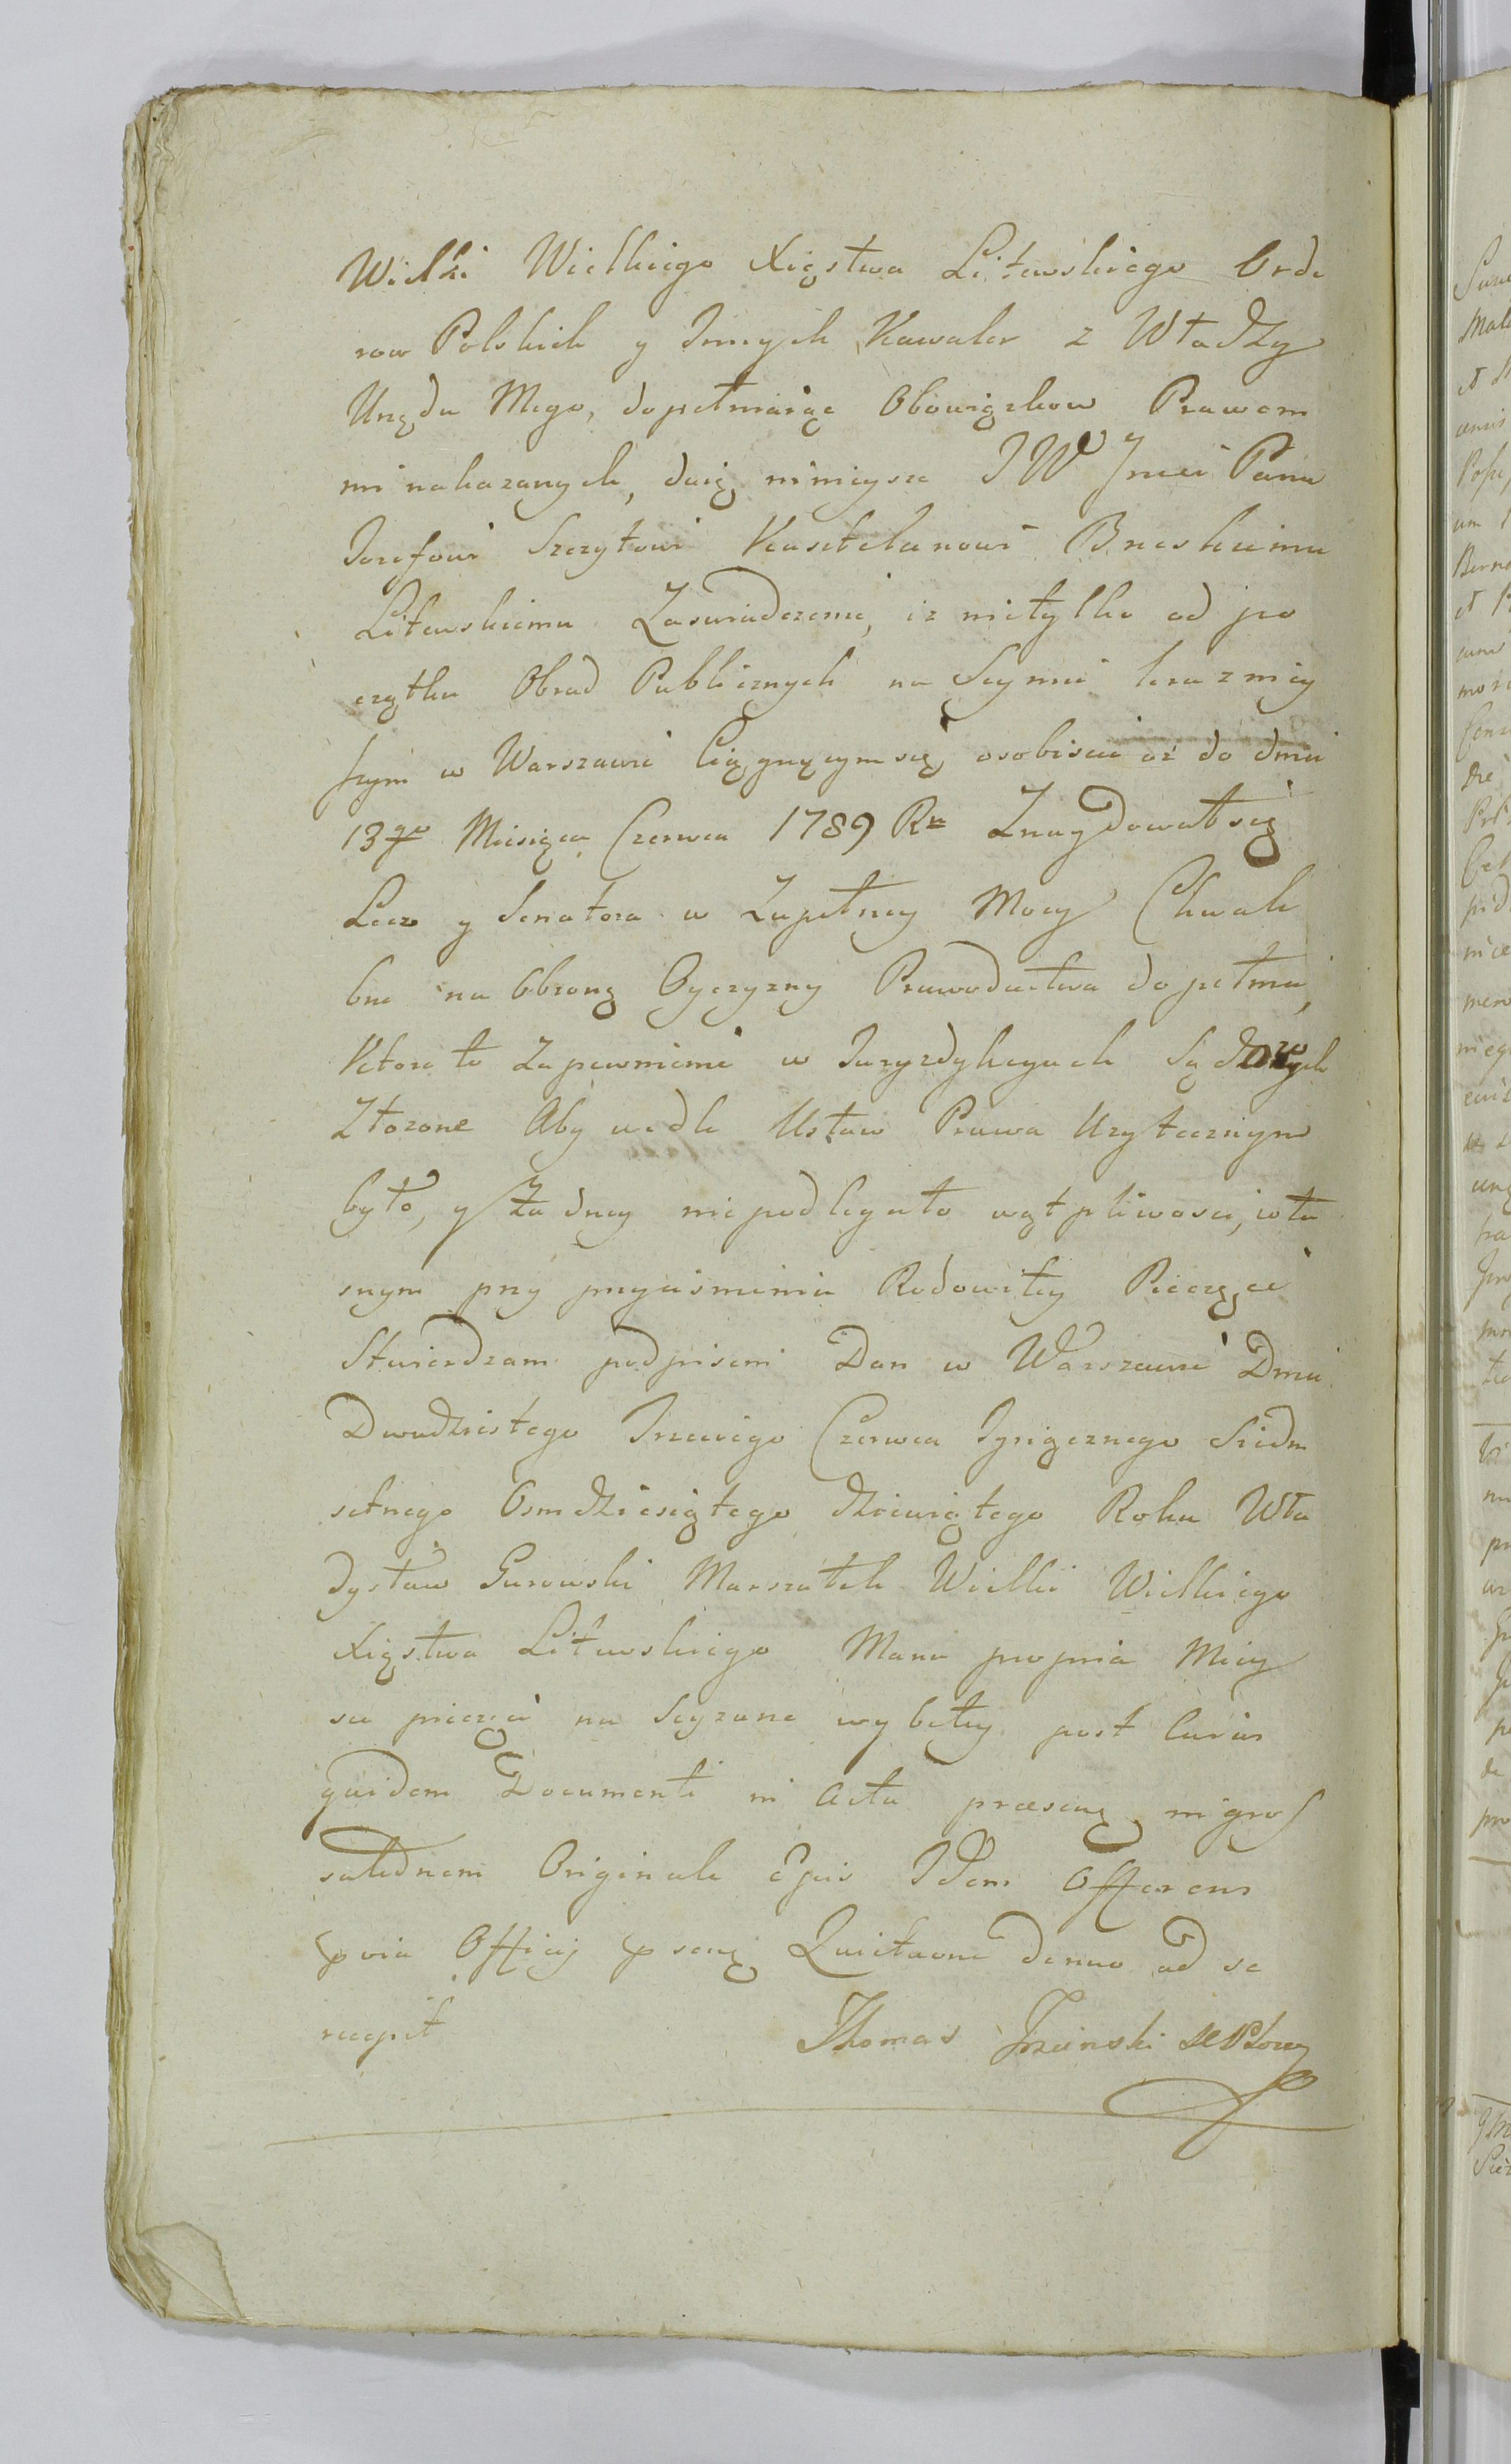 Wielki Wielkiego Xięstwa Litewskiego Orde
row Polskich y Innych Kawaler z Władzy
Urzędu Mego, dopełniaiąc Obowiązkow Prawem
mi nakazanych, daię ninieysze JW Jmci Panu
Jozefowi Szczytowi Kasztelanowi Brzeskiemu
Litewskiemu Zaswiadczenie, iz nietylko od po
czątku Obrad Publicznych na Seymie terazniey
szym w Warszawie Ciągnącym się osobiscie aż do dnia
13go Miesiąca Czerwca 1789 Ru Znaydował się
Lecz y Senatora w Zupełney Mocy Chwale
bne na Obronę Oyczyzny Prawodactwa dopełnia,
Ktore to Zapewnienie w Juryzdykcyach Sądowych
Złozone Aby wedle Ustaw Prawa Uzytecznym
było, y Zadney niepodlegało wątpliwosci, wła
snym przy przyciśnieniu Rodowitey Pieczęci
Stwierdzam podpisem Dan w Warszawie Dnia
Dwudziestego Trzeciego Czerwca Tysiącznego Siedm
setnego Osmdziesiątego dziewiątego Roku Wła
dysław Gurowski Marszałek Wielki Wielkiego
Xięstwa Litewskiego Manu propria Miey
sce pieczęci na Seyzane wybitey post Cuius
quidem Documenti in Acta praesens ingros
sationem Originale Ejus Idem Offerens
pria Officij psens Quietavit denuo ad se
recepit Thomas Jrzinski